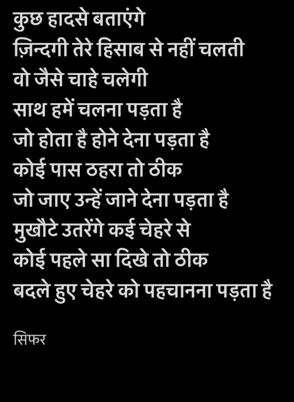 कुछ हादसे बताएंगे
ज़िन्दगी तेरे हिसाब से नहीं चलती
वो जैसे चाहे चलेगी
साथ हमें चलना पड़ता है
जो होता है होने देना पड़ता है
कोई पास ठहरा तो ठीक
जो जाए उन्हें जाने देना पड़ता है
मुखौटे उतरेंगे कई चेहरे से
कोई पहले सा दिखे तो ठीक
बदले हुए चेहरे को पहचानना पड़ता है
सिफर